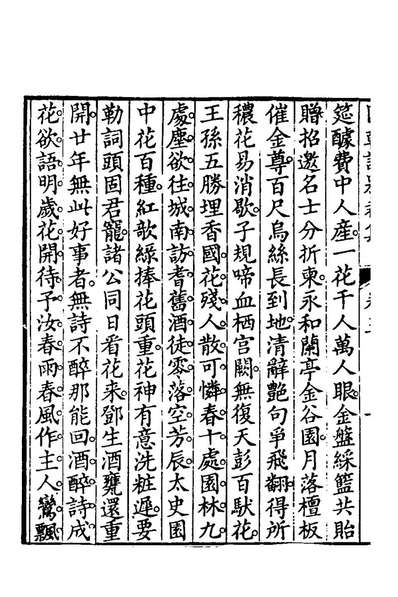 筵醵費中人產一花千人萬人眼金盤綵籃共貽
贈招邀名士分折柬永和蘭亭金谷園月落檀板
催金尊百尺烏絲長到地清辭豔句爭飛翻得所
穠花易消歇子規啼血栖宫闕無復天彭百馱花
王孫五勝埋香國花殘人散可憐春十處園林九
處塵欲往城南訪耆舊酒徒零落空芳辰太史園
中花百種紅歌綠捧花頭重花神有意洗粧遲要
勒詞頭固君寵諸公同日看花來鄧生酒甕還重
開廿年無此好事者無詩不醉那能回酒醉詩成
花欲語明歲花開待予汝春雨春風作主人鸞飄